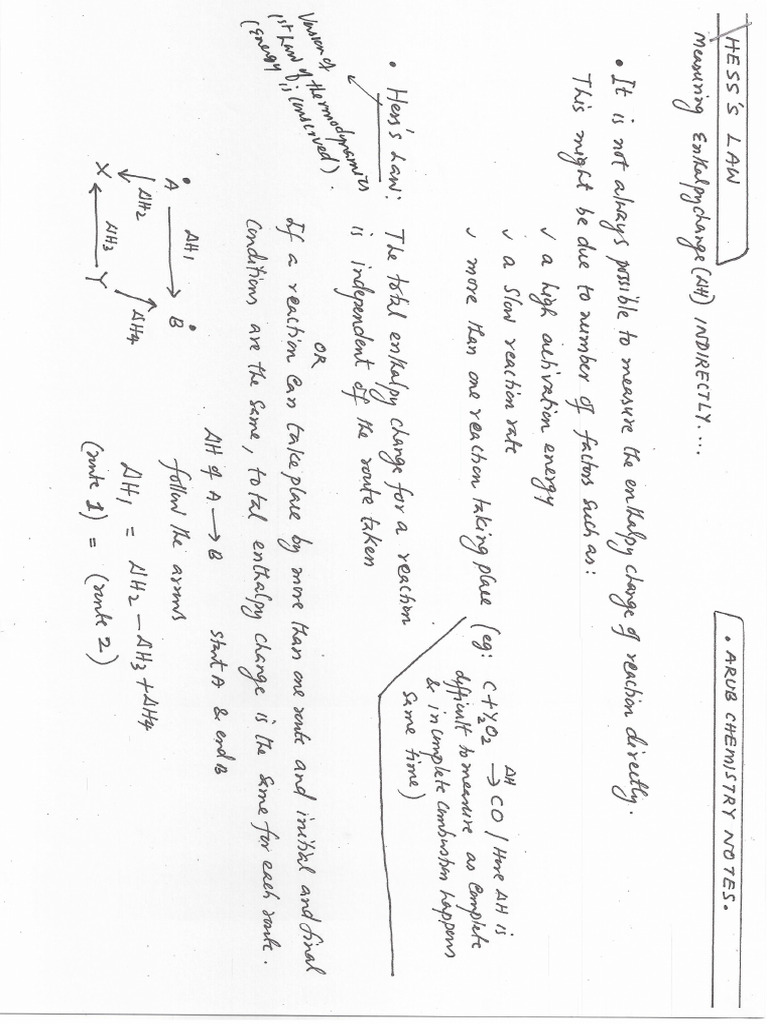 HESS'S LAW
• ARUB CHEMISTRY NOTES.
Measuring Enthalpy change (ΔH) INDIRECTLY....
• It is not always possible to measure the enthalpy change of reaction directly.
This might be due to number of factors such as:
✓ a high activation energy
✓ a slow reaction rate
✓ more than one reaction taking place
(eg: C + ½O2 ΔH → CO / Here ΔH is
difficult to measure as complete
& incomplete combustion happens
same time)
• Hess's Law: The total enthalpy change for a reaction
is independent of the route taken
Version of
1st Law of thermodynamics
(Energy is conserved).
OR
If a reaction can take place by more than one route and initial and final
conditions are the same, total enthalpy change is the same for each route.
A ΔH1 → B
ΔH2
ΔH4
X ← ΔH3 Y
ΔH of A → B start A & end B
follow the arrows
ΔH1 = ΔH2 - ΔH3 + ΔH4
(route 1) = (route 2)